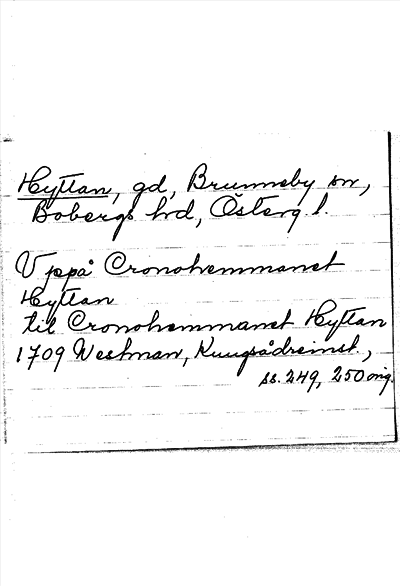 Hyttan, gd, Brunneby sn,
Bobergs hd, Österg. l.
Uppå Cronohemmanet
Hyttan
til Cronohemmanet Hyttan
1709 Westman,
ss. 249, 250 orig.